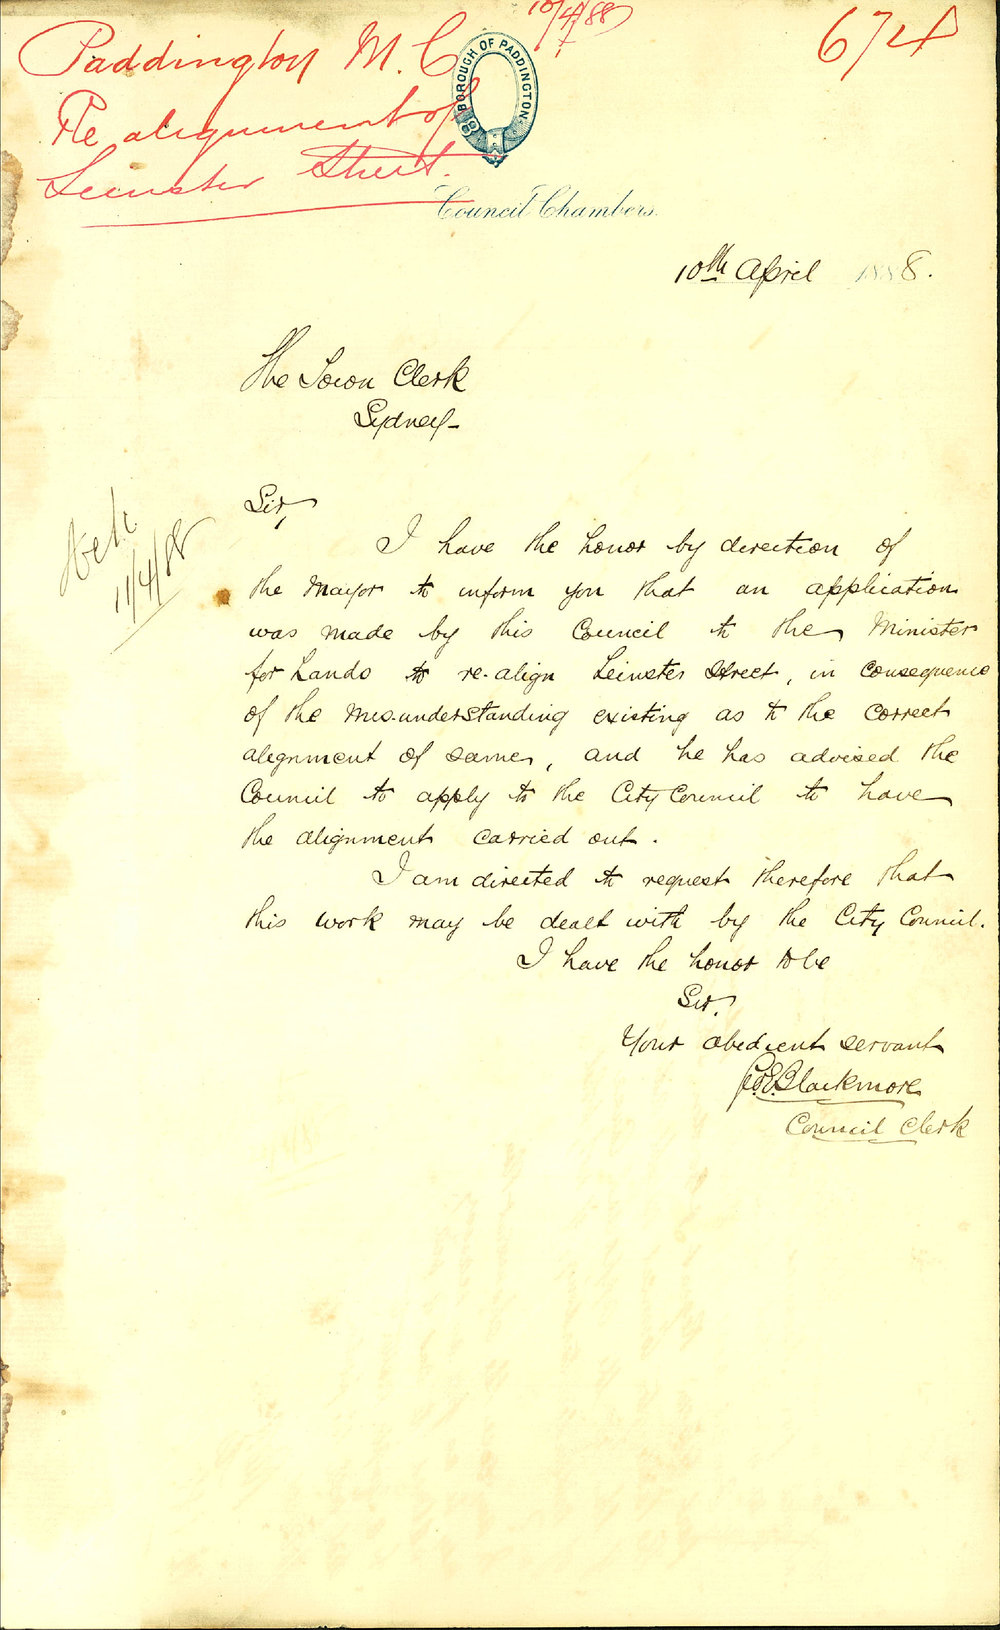 10/4/88
674
Paddington M. C.
Re alignment of
Leinster Street.
BOROUGH OF PADDINGTON.
Council Chambers.
10th April 1888.
The Town Clerk
Sydney-
Sir,
I have the honor by direction of
the Mayor to inform you that an application
was made by this Council to the Minister
for Lands to re-align Leinster Street, in consequence
of the mis-understanding existing as to the correct
alignment of same, and he has advised the
Council to apply to the City Council to have
the alignment carried out.
I am directed to request therefore that
this work may be dealt with by the City Council.
I have the honor to be
Sir,
Your obedient servant
Blackmore
Council Clerk
11/4/88